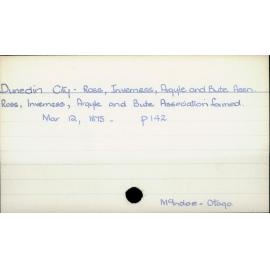 Dunedin City - Ross, Inverness, Argyle and Bute Assn.
Ross, Inverness, Argyle and Bute Association formed.
Mar 12, 1875 - p142
McIndoe - Otago.